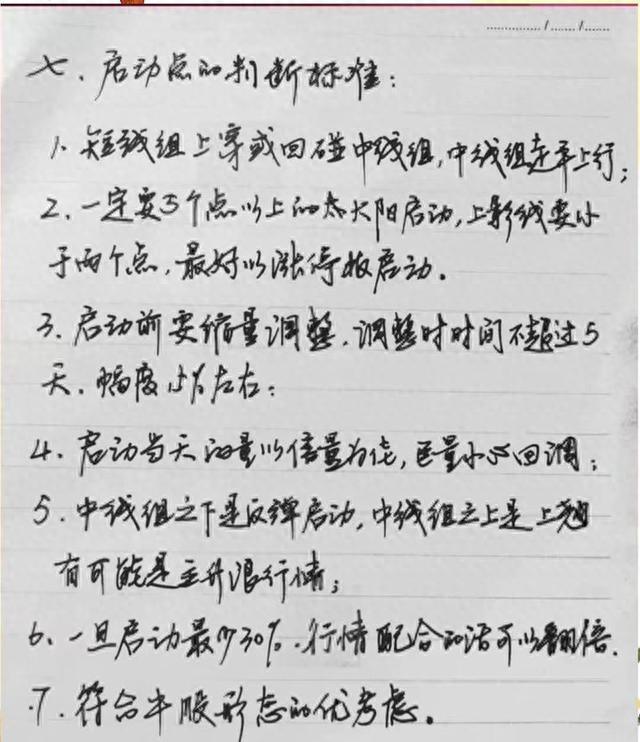 七、启动点的判断标准：
1、短线组上穿或回碰中线组，中线组走平上行；
2、一定要5个点以上的大阳启动，上影线要小
于两个点，最好以涨停板启动。
3、启动前要缩量调整，调整时时间不超过5
天、幅度 左右；
4、启动当天的量以倍量为佳，巨量小心回调；
5、中线组之下是反弹启动，中线组之上是上翘
有可能是主升浪行情；
6、一旦启动最少30%，行情配合的话可以翻倍．
7、符合牛股形态的优考虑。